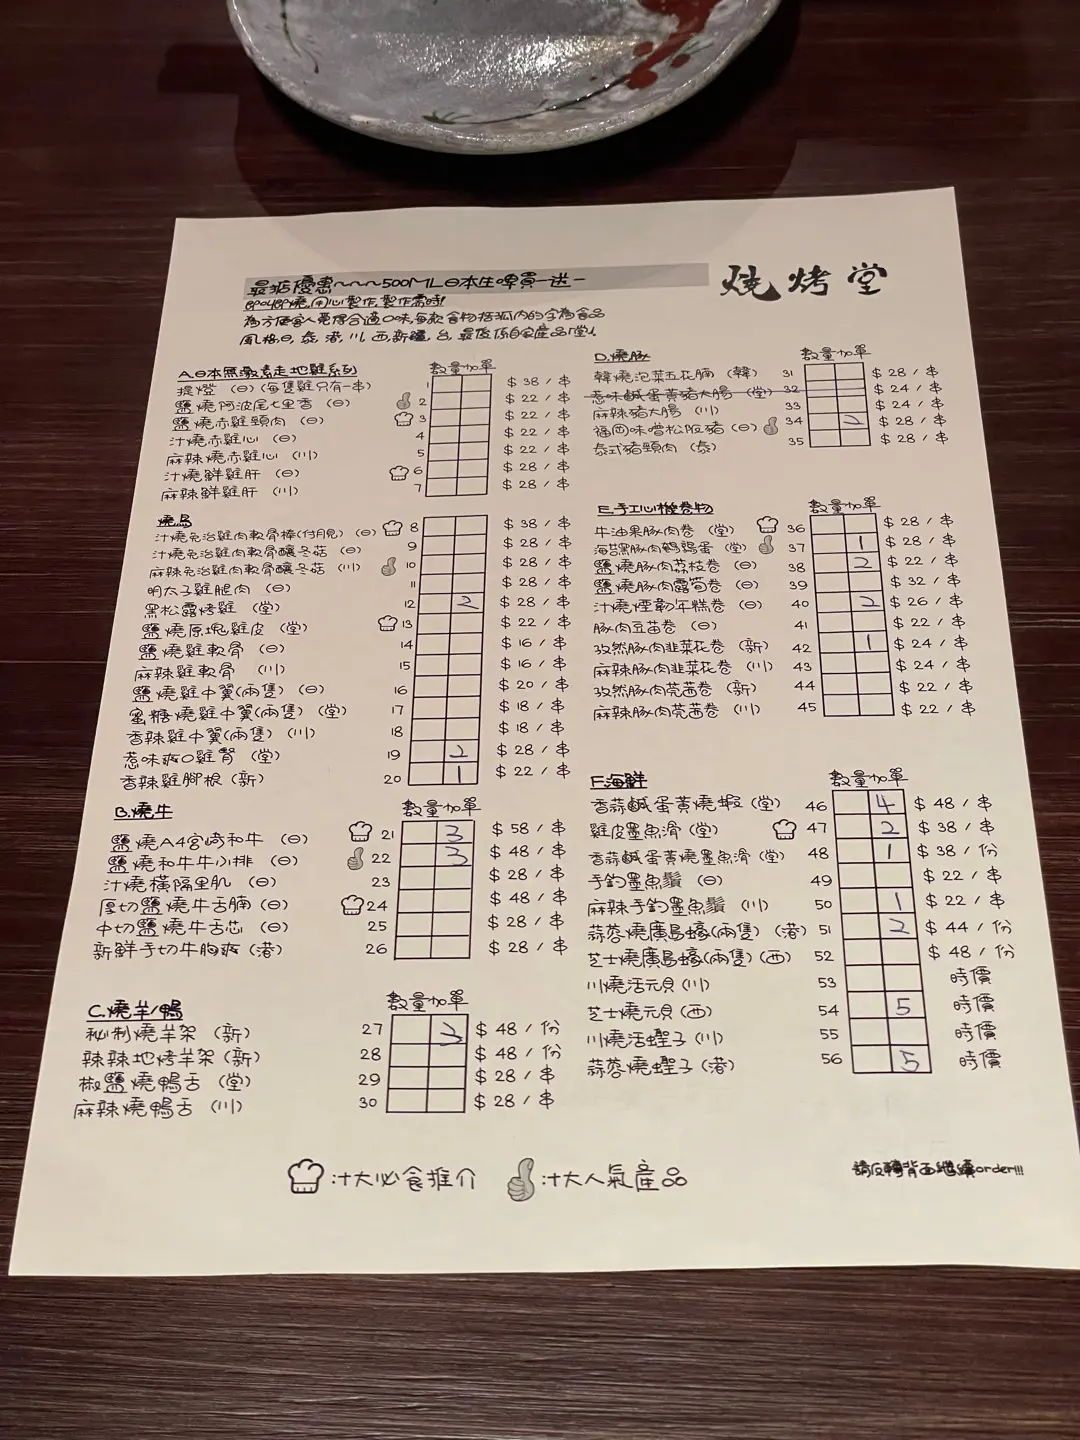 最抵優惠~~~500ML日本生啤買一送一
燒烤堂
即叫即燒,用心製作,製作需時!
為方便客人覓得合適口味,每款食物括弧內的字為食品
風格日,泰,港,川,西,新疆,台,最後係自家產品(堂).
A.日本無激素走地雞系列 數量 加單
提燈 (日) (每隻雞只有一串) 1 $ 38 / 串
鹽燒阿波尾七里香 (日) 2 $ 22 / 串
鹽燒赤雞頸肉 (日) 3 $ 22 / 串
汁燒赤雞心 (日) 4 $ 22 / 串
麻辣燒赤雞心 (川) 5 $ 22 / 串
汁燒鮮雞肝 (日) 6 $ 28 / 串
麻辣鮮雞肝 (川) 7 $ 28 / 串
燒鳥
汁燒免治雞肉軟骨棒(付月見) (日) 8 $ 38 / 串
汁燒免治雞肉軟骨釀冬菇 (日) 9 $ 28 / 串
麻辣免治雞肉軟骨釀冬菇 (川) 10 $ 28 / 串
明太子雞腿肉 (日) 11 $ 28 / 串
黑松露烤雞 (堂) 12 2 $ 28 / 串
鹽燒原塊雞皮 (堂) 13 $ 22 / 串
鹽燒雞軟骨 (日) 14 $ 16 / 串
麻辣雞軟骨 (川) 15 $ 16 / 串
鹽燒雞中翼(兩隻) (日) 16 $ 20 / 串
蜜糖燒雞中翼(兩隻) (堂) 17 $ 18 / 串
香辣雞中翼(兩隻) (川) 18 $ 18 / 串
惹味爽口雞腎 (堂) 19 2 $ 28 / 串
香辣雞腳根 (新) 20 1 $ 22 / 串
B.燒牛 數量 加單
鹽燒A4宮崎和牛 (日) 21 3 $ 58 / 串
鹽燒和牛牛小排 (日) 22 3 $ 48 / 串
汁燒橫隔里肌 (日) 23 $ 28 / 串
厚切鹽燒牛舌腩 (日) 24 $ 48 / 串
中切鹽燒牛舌芯 (日) 25 $ 28 / 串
新鮮手切牛胸爽 (港) 26 $ 28 / 串
C.燒羊/鴨 數量 加單
秘制燒羊架 (新) 27 $ 48 / 份
辣辣地烤羊架 (新) 28 $ 48 / 份
椒鹽燒鴨舌 (堂) 29 $ 28 / 串
麻辣燒鴨舌 (川) 30 $ 28 / 串
D.燒豚 數量 加單
韓燒泡菜五花腩 (韓) 31 $ 28 / 串
惹味鹹蛋黃豬大腸 (堂) 32 $ 24 / 串
麻辣豬大腸 (川) 33 $ 24 / 串
福岡味噌松阪豬 (日) 34 2 $ 28 / 串
泰式豬頸肉 (泰) 35 $ 28 / 串
E.手工心機卷物 數量 加單
牛油果豚肉卷 (堂) 36 $ 28 / 串
海苔黑豚肉鵪鶉蛋 (堂) 37 1 $ 28 / 串
鹽燒豚肉荔枝卷 (日) 38 2 $ 22 / 串
鹽燒豚肉露筍卷 (日) 39 $ 32 / 串
汁燒煙韌年糕卷 (日) 40 2 $ 26 / 串
豚肉豆苗卷 (日) 41 $ 22 / 串
孜然豚肉韭菜花卷 (新) 42 1 $ 24 / 串
麻辣豚肉韭菜花卷 (川) 43 $ 24 / 串
孜然豚肉芫茜卷 (新) 44 $ 22 / 串
麻辣豚肉芫茜卷 (川) 45 $ 22 / 串
F.海鮮 數量 加單
香蒜鹹蛋黃燒蝦 (堂) 46 4 $ 48 / 串
雞皮墨魚滑 (堂) 47 2 $ 38 / 串
香蒜鹹蛋黃燒墨魚滑 (堂) 48 1 $ 38 / 份
手釣墨魚鬚 (日) 49 $ 22 / 串
麻辣手釣墨魚鬚 (川) 50 1 $ 22 / 串
蒜蓉燒廣島蠔(兩隻) (港) 51 2 $ 44 / 份
芝士燒廣島蠔(兩隻) (西) 52 $ 48 / 份
川燒活元貝 (川) 53 時價
芝士燒元貝 (西) 54 5 時價
川燒活蟶子 (川) 55 時價
蒜蓉燒蟶子 (港) 56 5 時價
請反轉背面繼續order!!!
:十大必食推介 :十大人氣產品